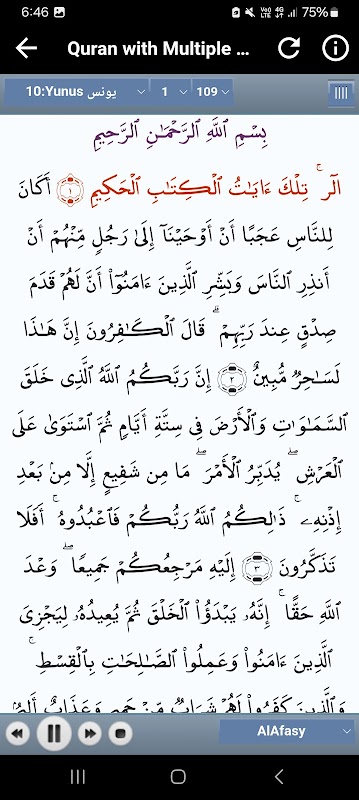 6:46 VoLTE 4G 75%
Quran with Multiple ...
10:Yunus يونس 1 109
بِسْمِ ٱللَّهِ ٱلرَّحْمَـٰنِ ٱلرَّحِيمِ
الٓر ۚ تِلْكَ ءَايَـٰتُ ٱلْكِتَـٰبِ ٱلْحَكِيمِ ١ أَكَانَ
لِلنَّاسِ عَجَبًا أَنْ أَوْحَيْنَآ إِلَىٰ رَجُلٍ مِّنْهُمْ أَنْ
أَنذِرِ ٱلنَّاسَ وَبَشِّرِ ٱلَّذِينَ ءَامَنُوٓا۟ أَنَّ لَهُمْ قَدَمَ
صِدْقٍ عِندَ رَبِّهِمْ ۗ قَالَ ٱلْكَـٰفِرُونَ إِنَّ هَـٰذَا
لَسَـٰحِرٌ مُّبِينٌ ٢ إِنَّ رَبَّكُمُ ٱللَّهُ ٱلَّذِى خَلَقَ
ٱلسَّمَـٰوَٰتِ وَٱلْأَرْضَ فِى سِتَّةِ أَيَّامٍ ثُمَّ ٱسْتَوَىٰ عَلَى
ٱلْعَرْشِ ۖ يُدَبِّرُ ٱلْأَمْرَ ۖ مَا مِن شَفِيعٍ إِلَّا مِنۢ بَعْدِ
إِذْنِهِۦ ۚ ذَٰلِكُمُ ٱللَّهُ رَبُّكُمْ فَٱعْبُدُوهُ ۚ أَفَلَا
تَذَكَّرُونَ ٣ إِلَيْهِ مَرْجِعُكُمْ جَمِيعًا ۖ وَعْدَ
ٱللَّهِ حَقًّا ۚ إِنَّهُۥ يَبْدَؤُا۟ ٱلْخَلْقَ ثُمَّ يُعِيدُهُۥ لِيَجْزِىَ
ٱلَّذِينَ ءَامَنُوا۟ وَعَمِلُوا۟ ٱلصَّـٰلِحَـٰتِ بِٱلْقِسْطِ ۚ
وَٱلَّذِينَ كَفَرُوا۟ لَهُمْ شَرَابٌ مِّنْ حَمِيمٍ وَعَذَابٌ
AlAfasy